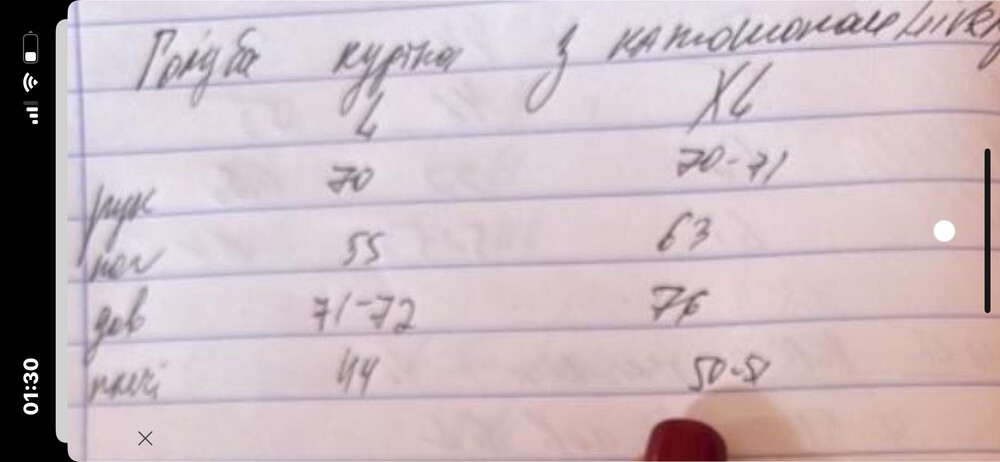 Голуба куртка з капюшоном
L XL
рук 70 70-71
пог 55 63
дов 71-72 76
плечі 44 50-51
01:30